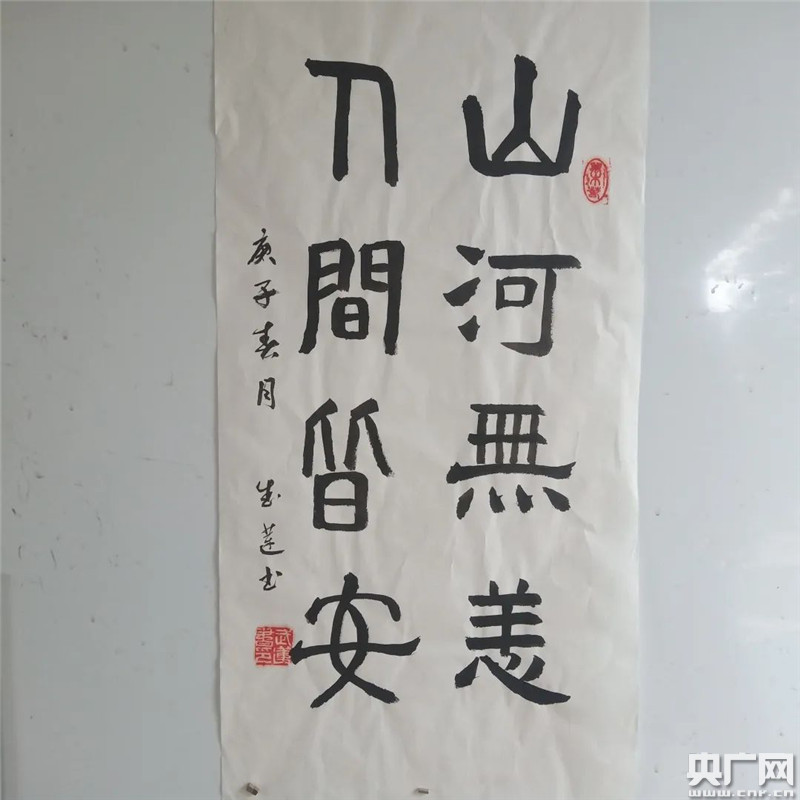 山河無恙
人間皆安
庚子春月 武莲书
央广网
www.cnr.cn